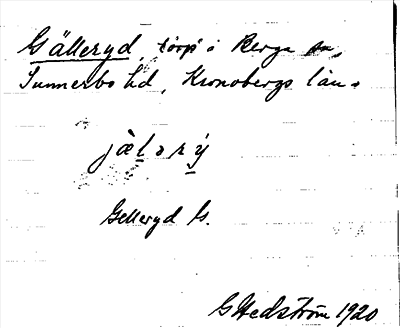 Gälleryd, torp i Berga sn,
Sunnerbo hd, Kronobergs län.
jæ̀lərý
Gelleryd G.
GHedström 1920